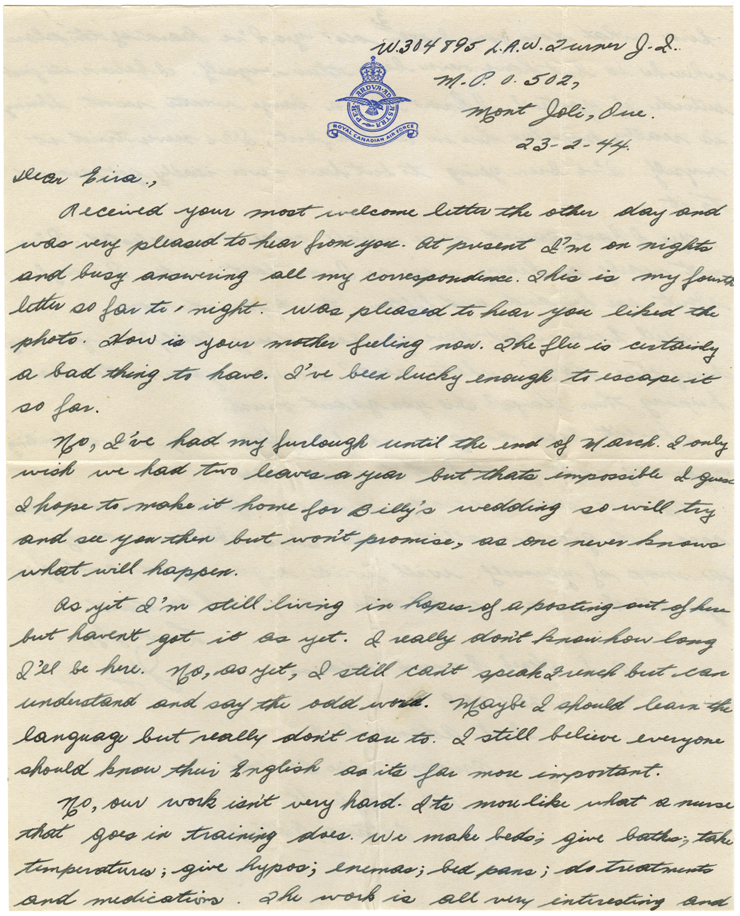 W.304895 L.A.W. Turner J.I.
M.P.O. 502,
Mont Joli, Que.
23-2-44.
PER ARDVA AD ASTRA
ROYAL CANADIAN AIR FORCE
Dear Eira.,
Received your most welcome letter the other day and
was very pleased to hear from you. At present I'm on nights
and busy answering all my correspondence. This is my fourth
letter so far to'night. Was pleased to hear you liked the
photo. How is your mother feeling now. The flu is certainly
a bad thing to have. I've been lucky enough to escape it
so far.
No, I've had my furlough until the end of March. I only
wish we had two leaves a year but thats impossible I guess
I hope to make it home for Billy's wedding so will try
and see you then but won't promise, as one never knows
what will happen.
As yet I'm still living in hopes of a posting out of here
but haven't got it as yet. I really don't know how long
I'll be here. No, as yet, I still can't speak French but can
understand and say the odd word. Maybe I should learn the
language but really don't care to. I still believe everyone
should know their English as its far more important.
No, our work isn't very hard. Its more like what a nurse
that goes in training does. We make beds; give baths; take
temperatures; give hypos; enemas; bed pans; do treatments
and medications. The work is all very interesting and